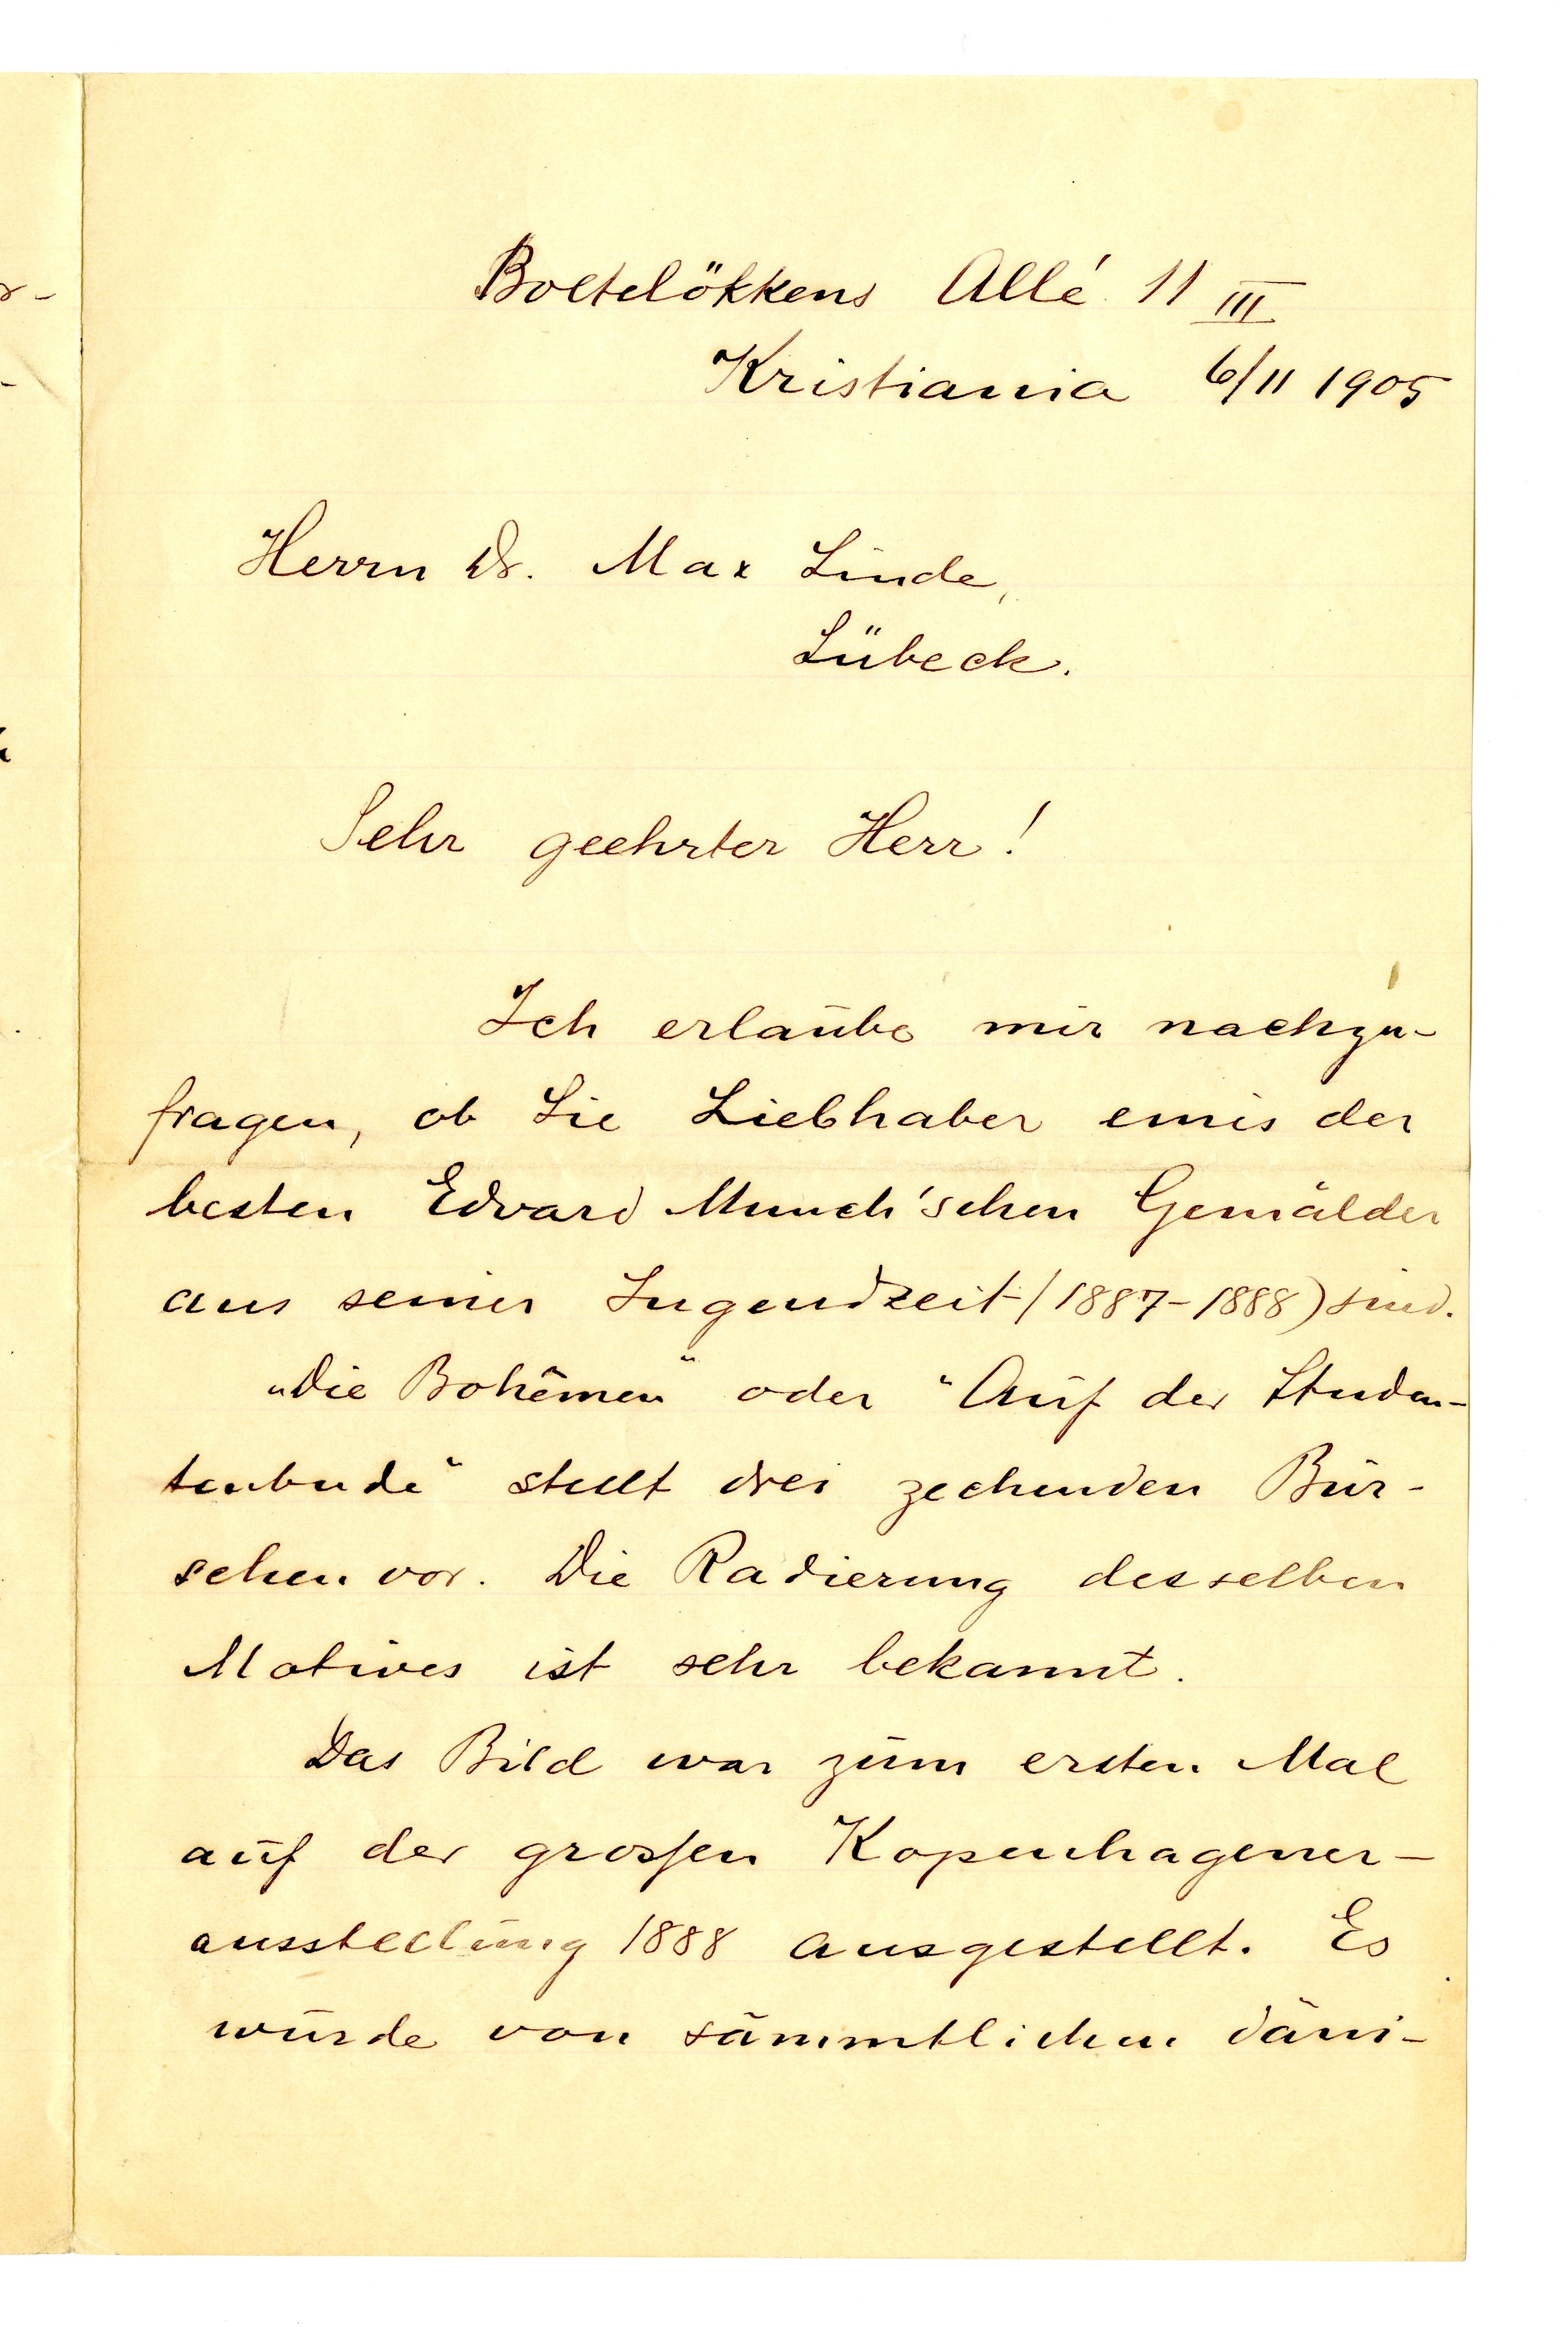 Boltelökkens Allé 11 III
Kristiania 6/11 1905
Herrn Dr. Max Linde,
Lübeck.
Sehr geehrter Herr!
Ich erlaube mir nachzu-
fragen, ob Sie Liebhaber eines der
besten Edvard Munch'schen Gemälder
aus seiner Jugendzeit (1887-1888) sind.
„Die Bohêmen" oder "Auf der Studen-
tenbude" stellt drei zechenden Bur-
schen vor. Die Radierung desselben
Motives ist sehr bekannt.
Das Bild war zum ersten Mal
auf der grossen Kopenhagener-
ausstellung 1888 ausgestellt. Es
wurde von sämmtlichen däni-